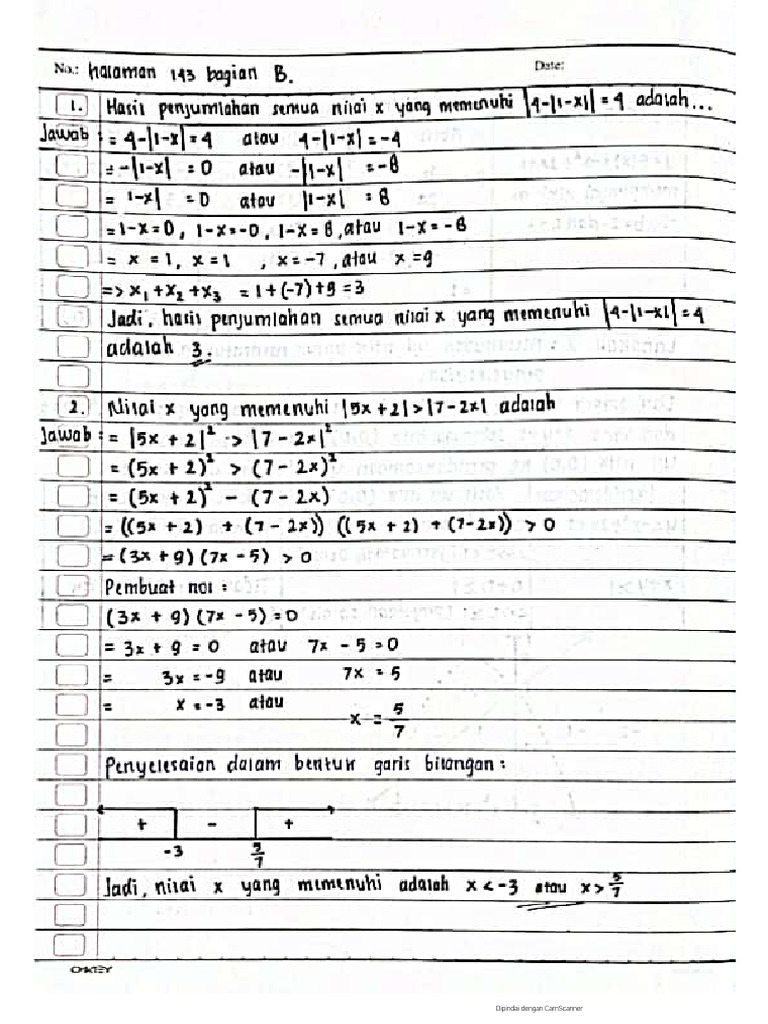 No.: halaman 143 bagian B. Date:
1. Hasil penjumlahan semua nilai x yang memenuhi |4-|1-x||=4 adalah...
Jawab := 4-|1-x|=4 atau 4-|1-x|=-4
= -|1-x| = 0 atau -|1-x| = -8
= 1-x| = 0 atau |1-x| = 8
= 1-x=0, 1-x=-0, 1-x=8, atau 1-x=-8
= x = 1, x = 1 , x = -7, atau x = 9
=> x₁+x₂+x₃ = 1+(-7)+9 = 3
Jadi, hasil penjumlahan semua nilai x yang memenuhi |4-|1-x||=4
adalah 3.
2. Nilai x yang memenuhi |5x+2|>|7-2x| adalah
Jawab : = |5x + 2|² > |7 - 2x|²
= (5x + 2)² > (7 - 2x)²
= (5x + 2)² - (7 - 2x)
= ((5x + 2) + (7 - 2x)) ((5x + 2) + (7-2x)) > 0
= (3x + 9) (7x - 5) > 0
Pembuat nol :
(3x + 9) (7x - 5) = 0
= 3x + 9 = 0 atau 7x - 5 = 0
= 3x = -9 atau 7x = 5
= x = -3 atau x = 5/7
Penyelesaian dalam bentuk garis bilangan :
+ - +
-3 5/7
Jadi, nilai x yang memenuhi adalah x < -3 atau x > 5/7
OKEY
Dipindai dengan CamScanner